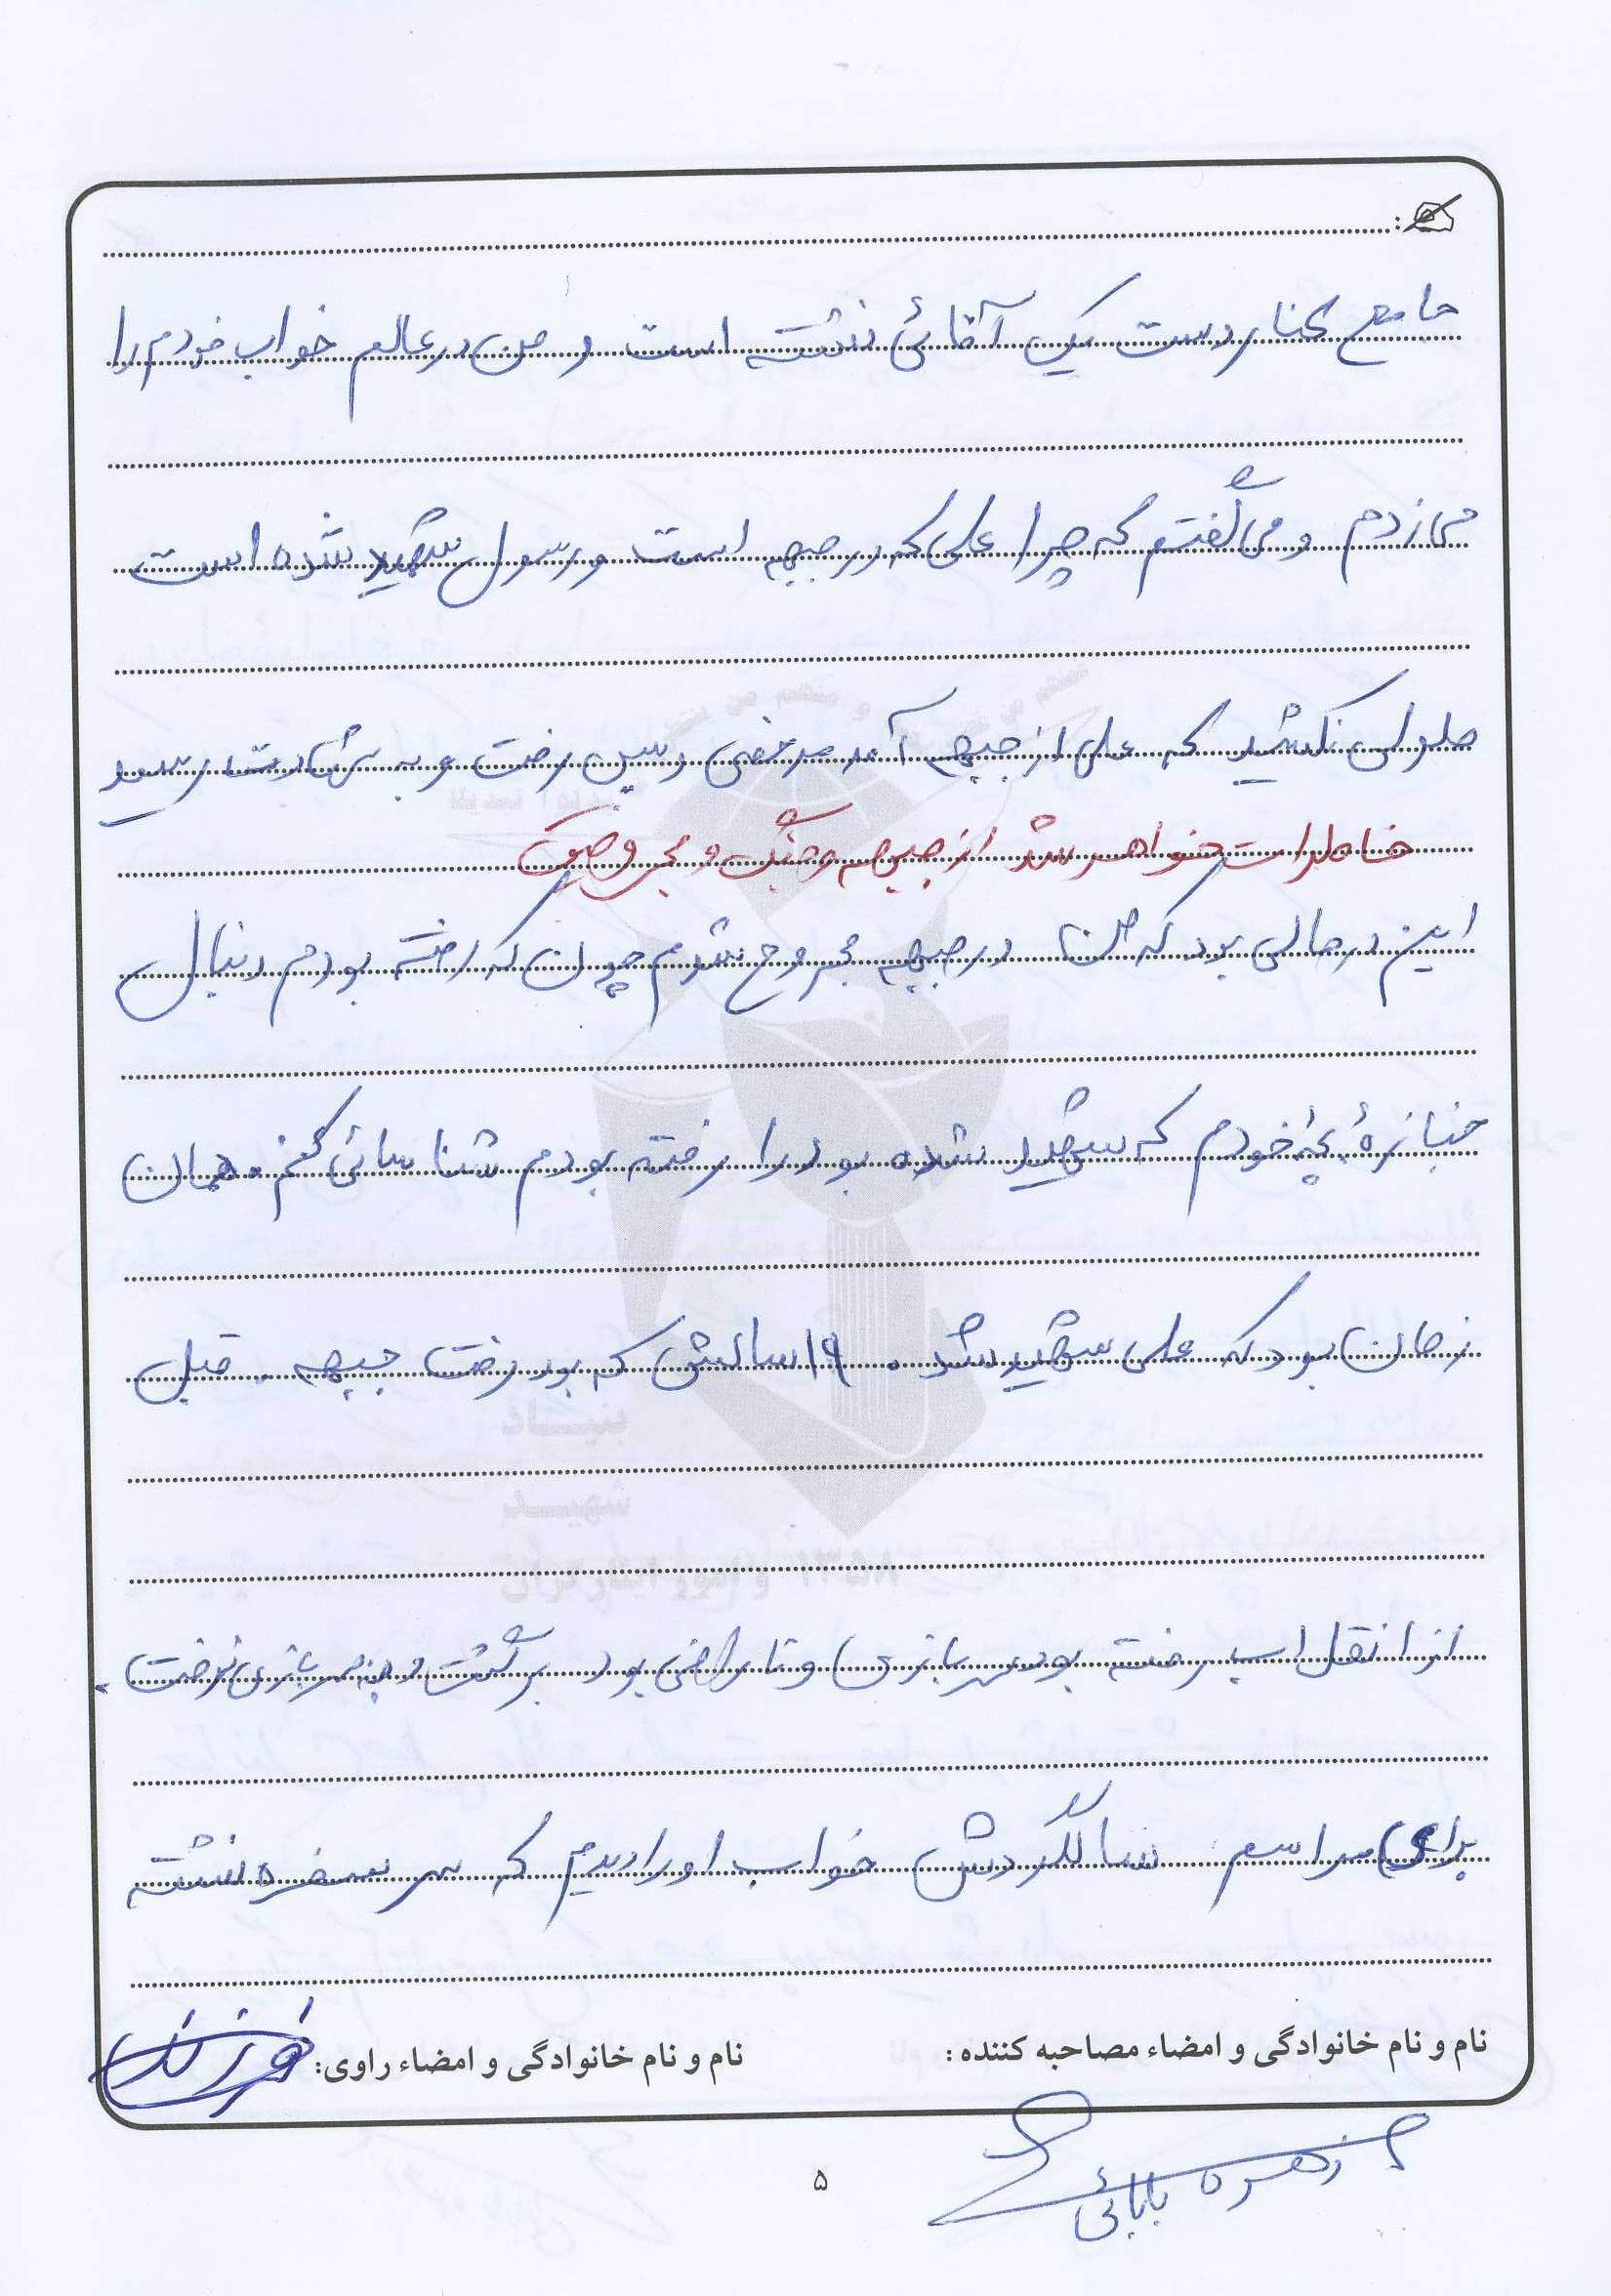 جامع کنار دست یک آقائی نشسته است و من در عالم خواب خودم را
می‌زدم و می‌گفتم که چرا علی که در جبهه است و رسول شهید شده است
طولی نکشید که علی از جبهه آمد مرخصی و رفت و به شهادت رسید
خاطرات خواهر شد از جبهه و جنگ و
این در حالی بود که من در جبهه مجروح شدم چون که رفته بودم دنبال
جنازهٔ بچهٔ خودم که شهید شده بود را رفته بودم شناسائی کنم. همان
زمان بود که علی شهید شد. ۱۹ سالش که بود رفت جبهه. قبل
از انقلاب رفته بود سربازی و ناراضی بود برگشت و به سربازی نرفت.
برای مراسم سالگردش خواب او را دیدم که سر سفره نشسته
نام و نام خانوادگی و امضاء مصاحبه کننده :
نام و نام خانوادگی و امضاء راوی:
زهره بابائی
۵